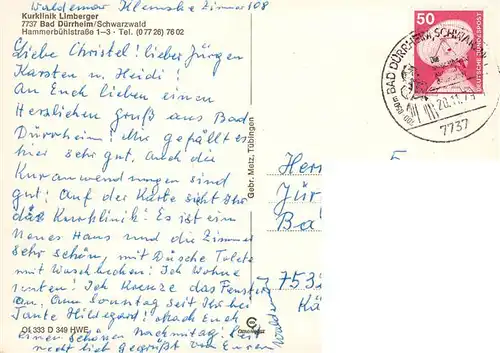 Waldemar Klemske Zimmer 108
Kurklinik Limberger
7737 Bad Dürrheim/Schwarzwald
Hammerbühlstraße 1–3 · Tel. (0 77 26) 76 02
Liebe Christel! lieber Jürgen
Karsten u. Heidi!
An Euch lieben einen
Herzlichen gruß aus Bad
Dürrheim! Mir gefällt es
hier sehr gut, auch die
Kuranwendungen sind
gut! Auf der Karte seht Ihr
das Kurklinik! Es ist ein
Neues Haus und die Zimmer
sehr schön, mit Dusche Tolete
mit Waschbecken! Ich Wohne
unten! Ich Kreuze das Fenster
an. Am Sonntag seit Ihr bei
Tante Hildegard! Mach Euch
einen schönen nachmittag! Seit
recht lich gegrüßt von Euren
Waldemar
OI 333 D 349 HWE
Gebr. Metz, Tübingen
50
DEUTSCHE BUNDESPOST
BAD DÜRRHEIM, SCHWARZW
7737
Herr
Jür
Ba
753
Kä